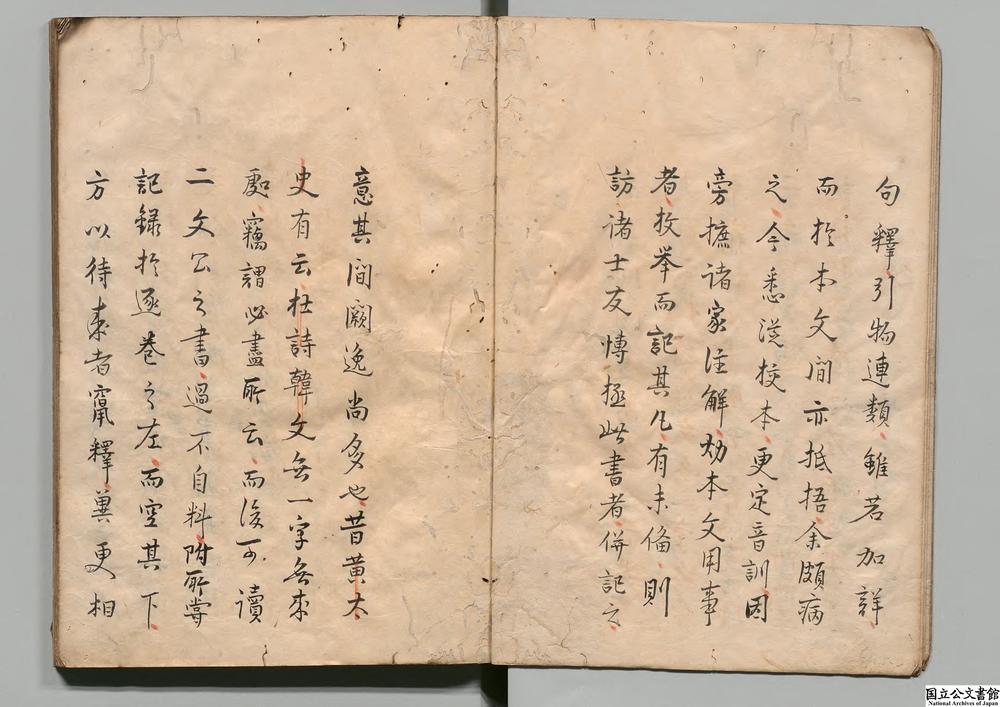 句釋引物連類雖若加詳
而於本文間亦抵捂余頗病
之今悉從挍本更定音訓因
旁摭諸家注解劾本文用事
者枚举而記其凡有未俻則
訪諸士友愽極此書者併記之
意其间闕逸尚多也昔黄太
史有云杜詩韓文無一字無来
處竊謂必盡所云而後可讀
二文公之書過不自料附所嘗
記録於逐卷之左而空其下
方以待来者竄釋冀更相
国立公文書館
National Archives of Japan